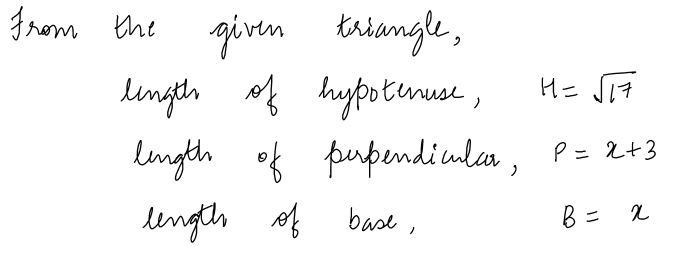 From the given triangle,
length of hypotenuse, H = √17
length of perpendicular, P = x+3
length of base, B = x